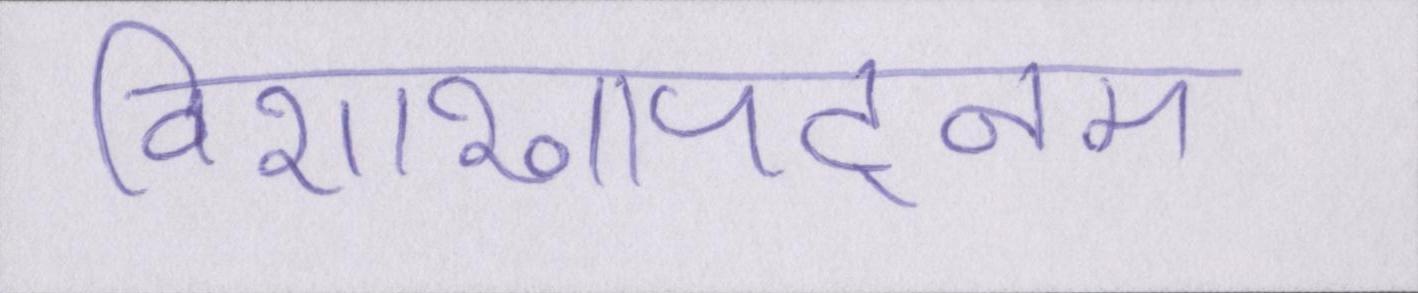 विशाखापट्नम